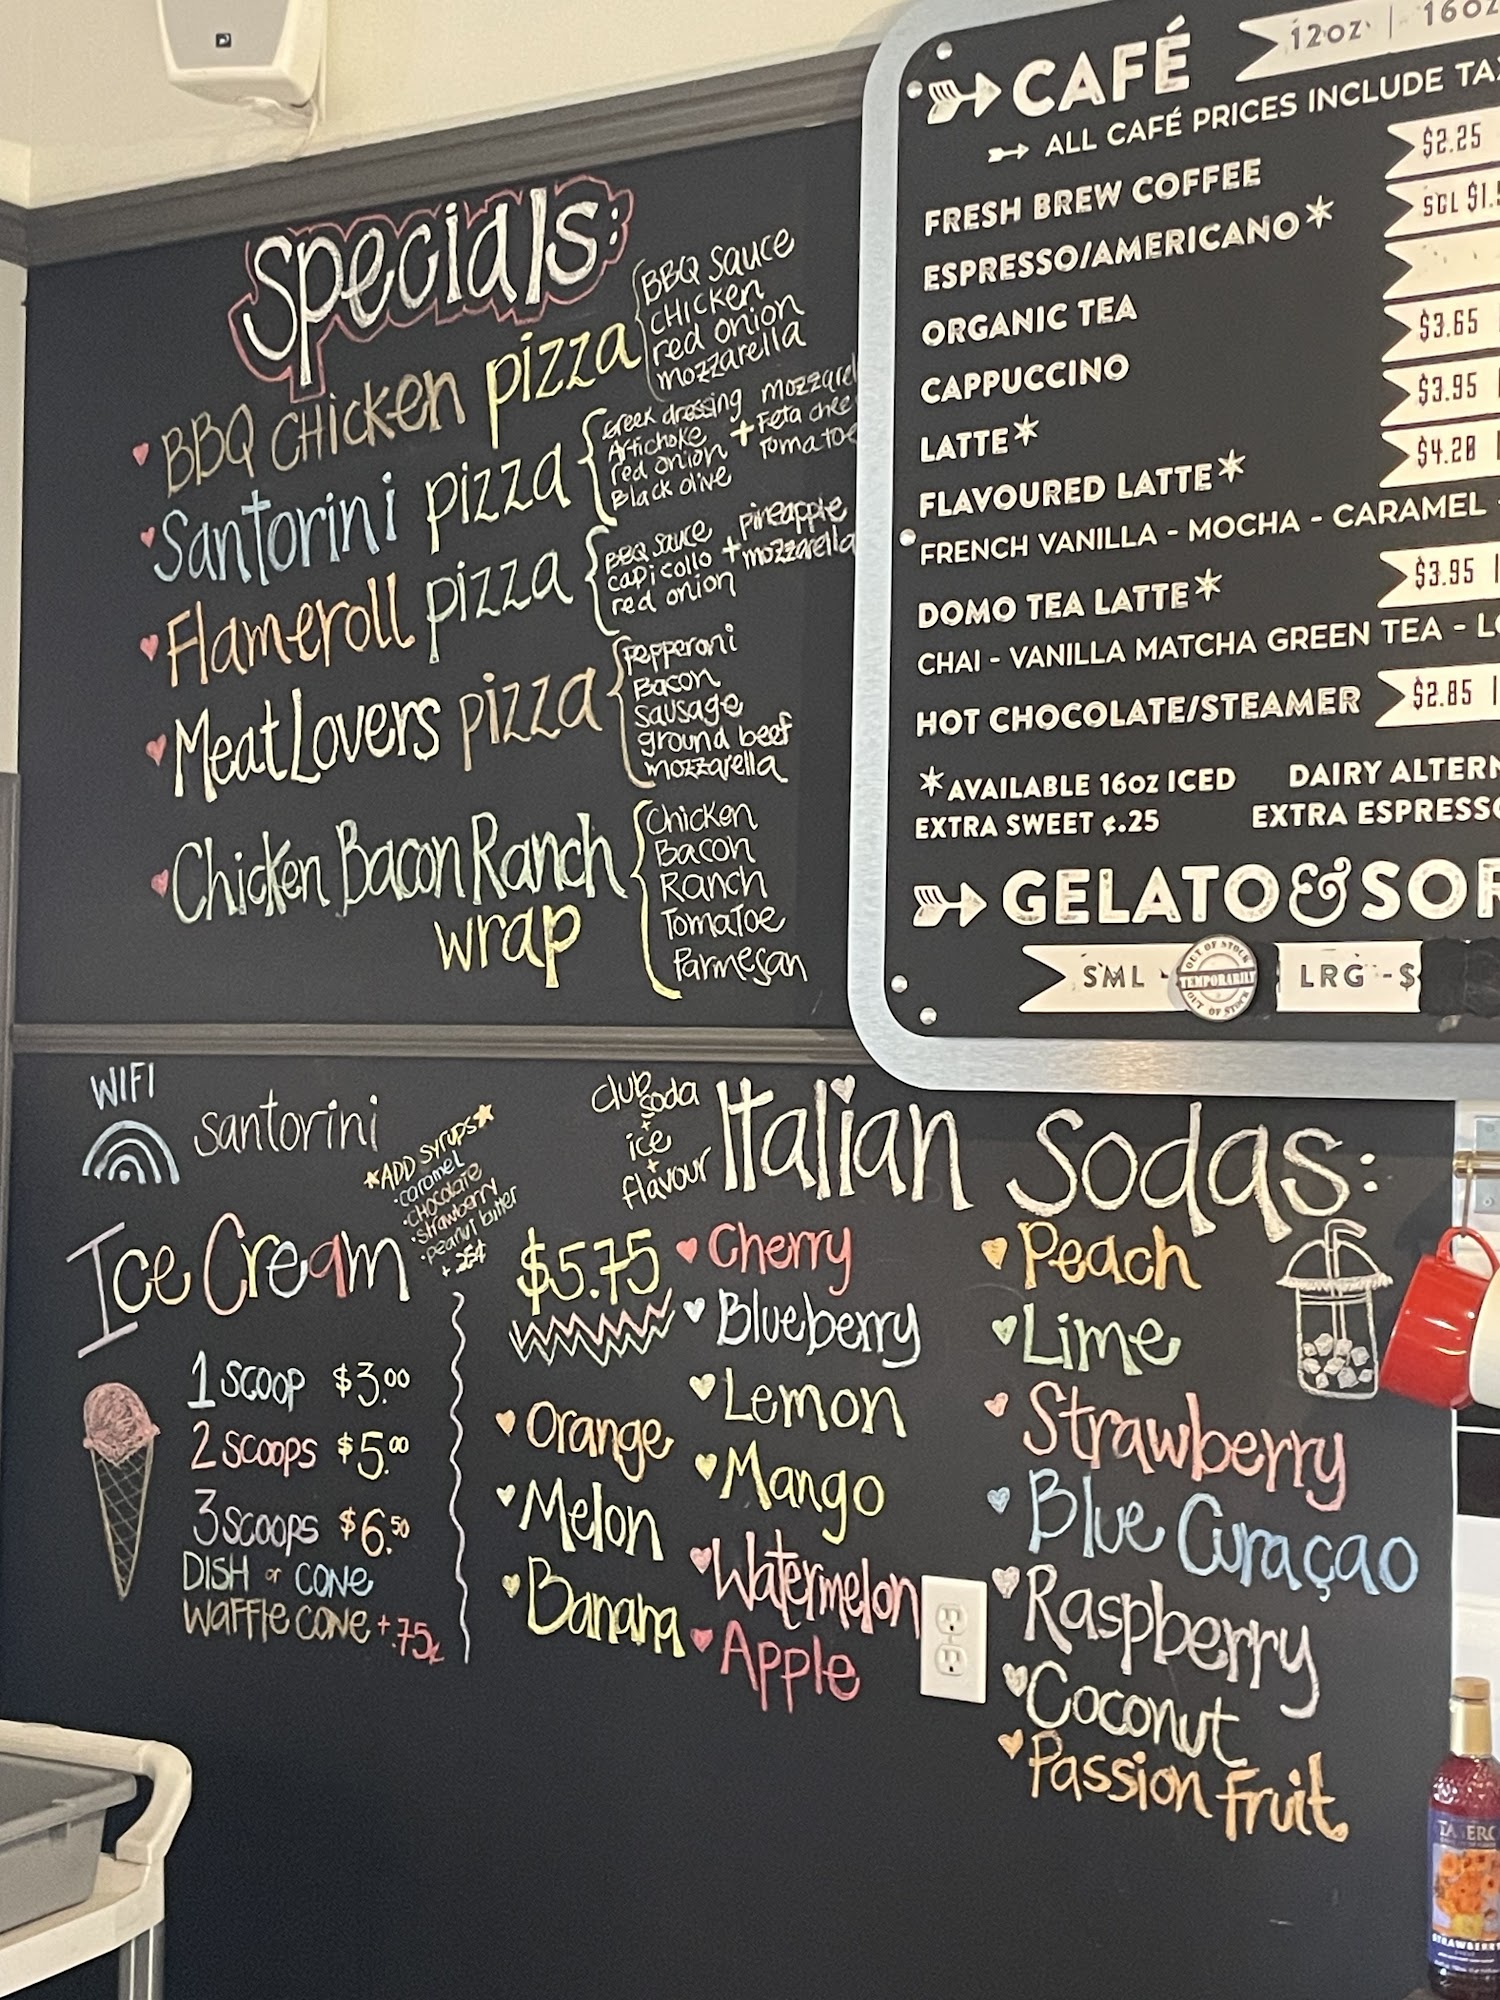 Specials:
BBQ Chicken pizza
BBQ Sauce
Chicken
red onion
mozzarella
Santorini pizza
Greek dressing
Artichoke
red onion
Black olive
+
mozzarel
Feta chee
Tomatoe
Flameroll pizza
BBQ Sauce
capicollo
red onion
+
pineapple
mozzarella
Meat Lovers pizza
Pepperoni
Bacon
Sausage
ground beef
mozzarella
Chicken Bacon Ranch
wrap
Chicken
Bacon
Ranch
Tomatoe
Parmesan
CAFÉ
12oz | 16oz
ALL CAFÉ PRICES INCLUDE TAX
FRESH BREW COFFEE $2.25
ESPRESSO/AMERICANO* SGL $1.5
ORGANIC TEA
CAPPUCCINO $3.65
LATTE* $3.95
FLAVOURED LATTE* $4.20
FRENCH VANILLA - MOCHA - CARAMEL
DOMO TEA LATTE* $3.95
CHAI - VANILLA MATCHA GREEN TEA - LO
HOT CHOCOLATE/STEAMER $2.85
*AVAILABLE 16oz ICED DAIRY ALTERN
EXTRA SWEET ¢.25 EXTRA ESPRESSO
GELATO & SOR
SML - LRG - $
OUT OF STOCK
TEMPORARILY
OUT OF STOCK
WIFI
santorini
Ice Cream
*ADD Syrups*
caramel
chocolate
strawberry
peanut butter
+ .25¢
1 scoop $3.00
2 scoops $5.00
3 scoops $6.50
DISH or CONE
WAFFLE CONE +.75¢
club soda
+
ice
+
flavour
Italian Sodas:
$5.75
Orange
Melon
Banana
Cherry
Blueberry
Lemon
Mango
Watermelon
Apple
Peach
Lime
Strawberry
Blue Curaçao
Raspberry
Coconut
Passion Fruit
STRAWBERRY